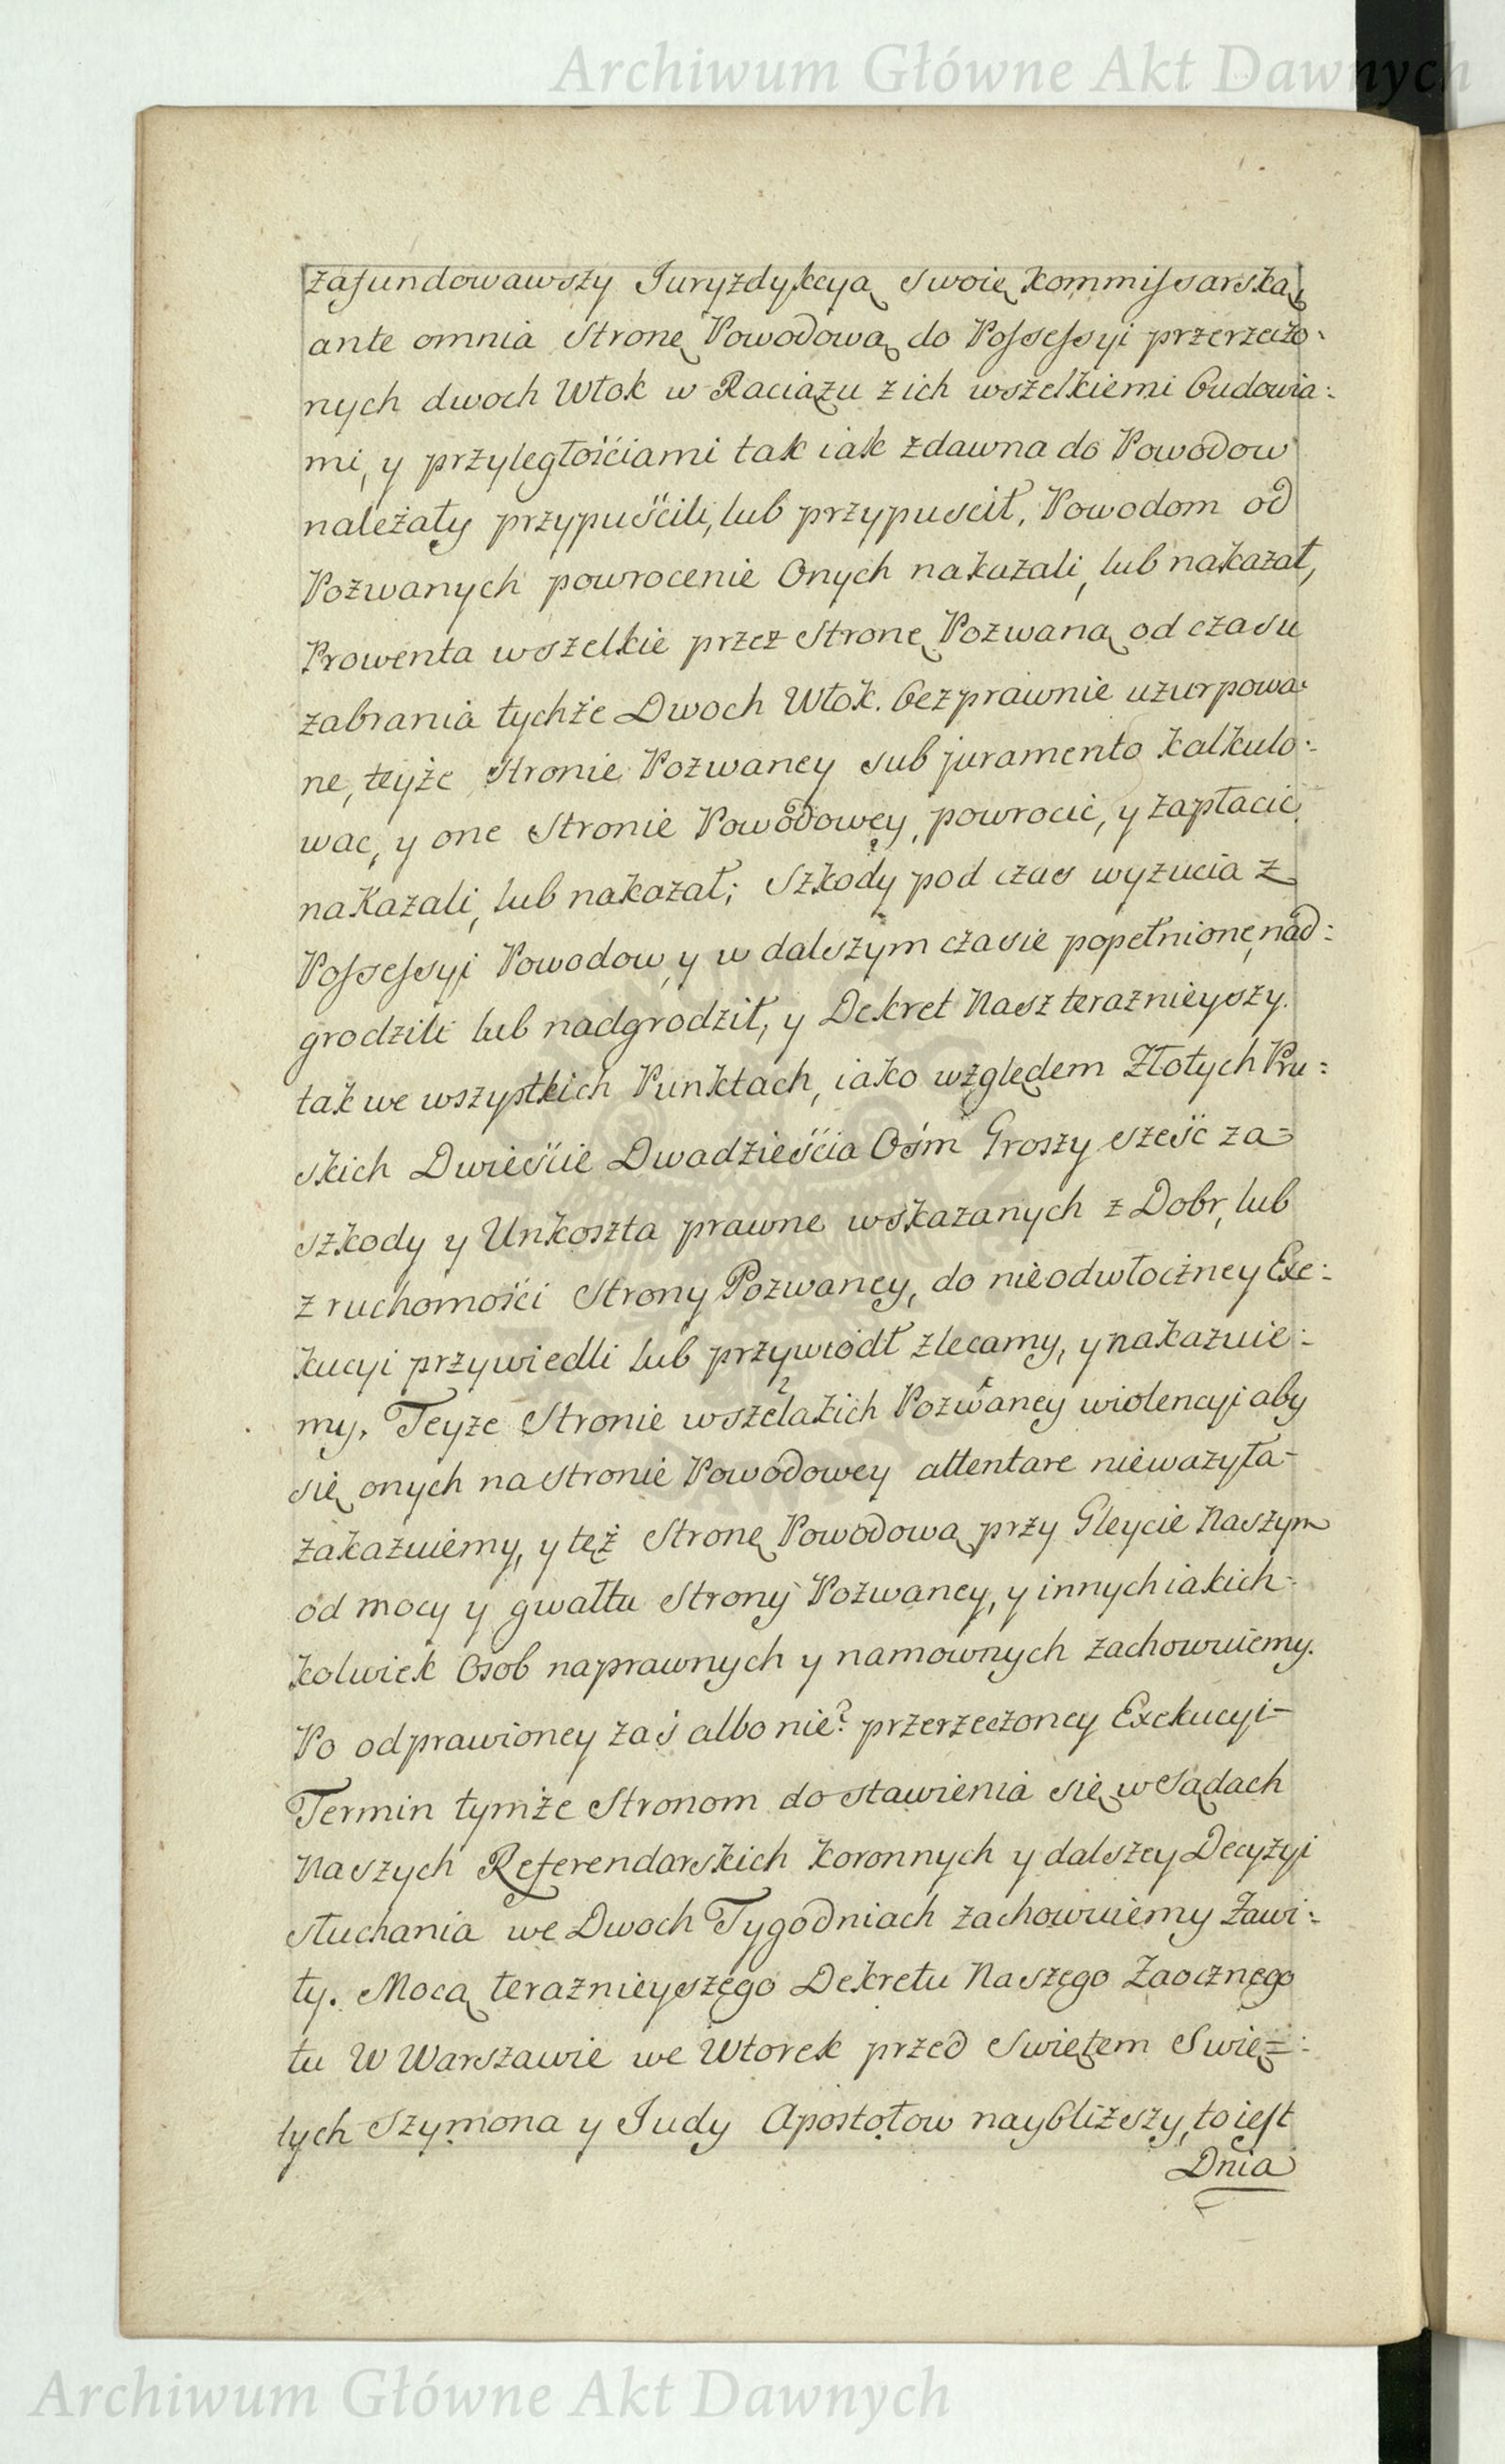 Archiwum Główne Akt Dawnych
zafundowawszy Juryzdykcyą swoię Kommissarską
ante omnia Stronę Powodową do Possessyi przerzeczo:
nych dwoch Włok w Raciążu z ich wszelkiemi budowia:
mi, y przyległościami tak iak zdawna do Powodow
należały przypuścili, lub przypuscił, Powodom od
Pozwanych powrocenie Onych nakazali, lub nakazał,
Prowenta wszelkie przez Stronę Pozwaną od czasu
zabrania tychże Dwoch Włok. bezprawnie uzurpowa:
ne, teyże Stronie Pozwaney sub juramento kalkulo:
wac, y one Stronie Powodowey, powrocić, y zapłacić
nakazali, lub nakazał; Szkody pod czas wyzucia z
Possessyi Powodow, y w dalszym czasie popełnione, nad:
grodzili lub nadgrodził, y Dekret Nasz teraznieyszy.
tak we wszystkich Punktach, iako względem Złotych Pru:
skich Dwieście Dwadzieścia Ośm Groszy sześć za=
szkody y Unkoszta prawne wskazanych z Dobr, lub
z ruchomości Strony Pozwaney, do nieodwłoczney Exe:
kucyi przywiedli lub przywiodł zlecamy, y nakazuie:
my, Teyże Stronie wszelakich Pozwaney wiolencyi aby
się onych na Stronie Powodowey attentare nieważyła-
zakazuiemy, y tęż Stronę Powodową przy Gleycie Naszym
od mocy y gwałtu Strony Pozwaney, y innych iakich-
kolwiek Osob naprawnych y namownych zachowuiemy.
Po odprawioney zaś albo nie? przerzeczoney Exekucyi-
Termin tymże Stronom do stawienia się w Sądach
Naszych Referendarskich Koronnych y dalszey Decyzyi
słuchania we Dwoch Tygodniach zachowuiemy Zawi:
ty. Mocą teraznieyszego Dekretu Naszego Zaocznego
tu W Warszawie we Wtorek przed Swiętem Swię=
tych Szymona y Judy Apostołow naybliższy, to iest
Dnia
Archiwum Główne Akt Dawnych